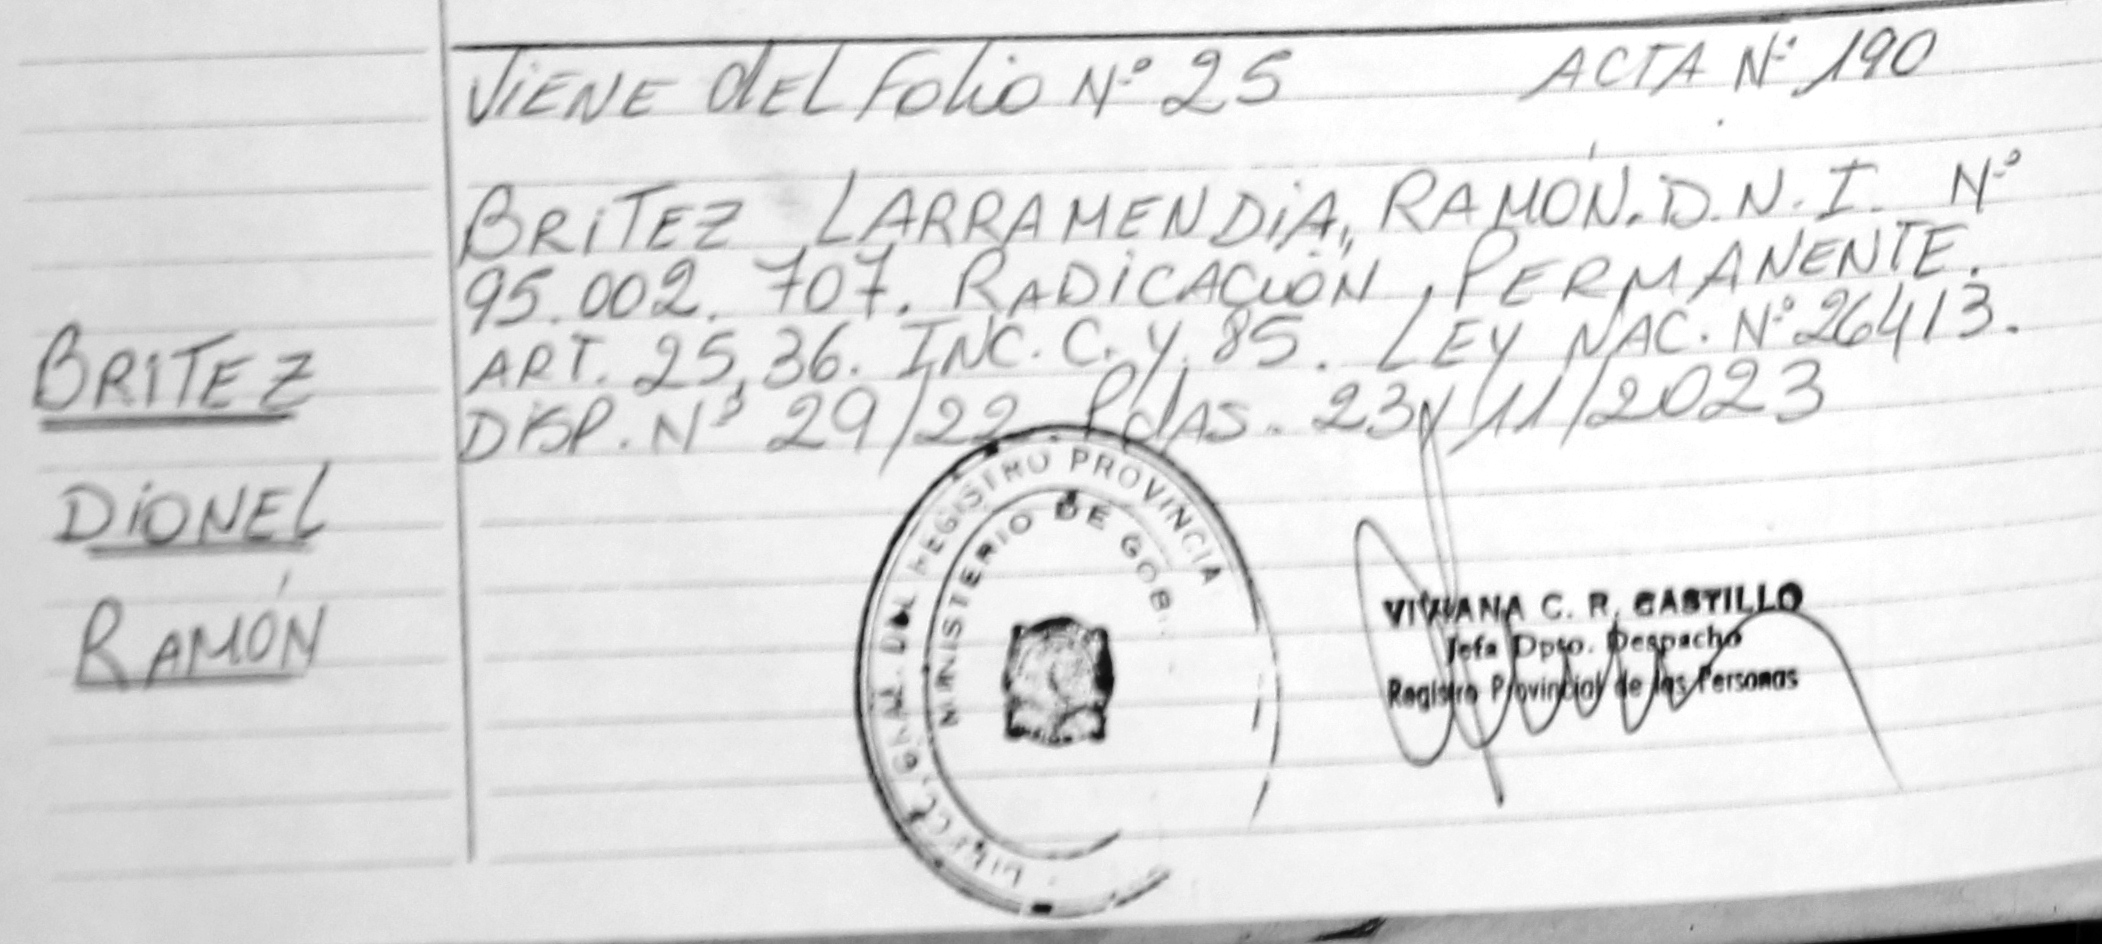 VIENE DEL FOLIO Nº 25 ACTA Nº 190
BRITEZ LARRAMENDIA, RAMÓN. D.N.I. Nº
95.002.707. RADICACIÓN, PERMANENTE.
ART. 25, 36. INC. C. Y. 85. LEY NAC. Nº 26413.
DISP. Nº 29/22. Pdas. 23/11/2023
BRITEZ
DIONEL
RAMÓN
REGISTRO PROVINCIA
MINISTERIO DE GOB.
VIVIANA C. R. CASTILLO
Jefa Dpto. Despacho
Registro Provincial de las Personas